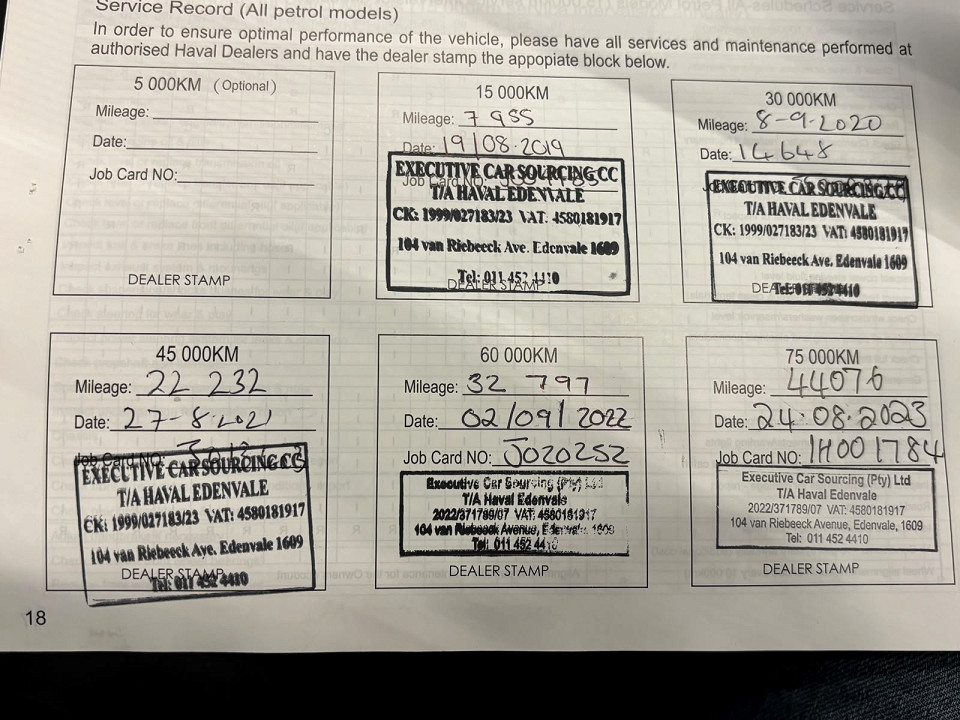 Service Record (All petrol models)
In order to ensure optimal performance of the vehicle, please have all services and maintenance performed at
authorised Haval Dealers and have the dealer stamp the appopiate block below.
5 000KM (Optional)
Mileage:
Date:
Job Card NO:
DEALER STAMP
15 000KM
Mileage: 7 955
Date: 19/08.2019
Job Card NO:
EXECUTIVE CAR SOURCING CC
T/A HAVAL EDENVALE
CK: 1999/027183/23 VAT: 4580181917
104 van Riebeeck Ave. Edenvale 1609
Tel: 011 452 4410
DEALER STAMP
30 000KM
Mileage: 8-9-2020
Date: 14648
EXECUTIVE CAR SOURCING CC
T/A HAVAL EDENVALE
CK: 1999/027183/23 VAT: 4580181917
104 van Riebeeck Ave. Edenvale 1609
Tel: 011 452 4410
45 000KM
Mileage: 22 232
Date: 27-8-2021
Job Card NO:
EXECUTIVE CAR SOURCING CC
T/A HAVAL EDENVALE
CK: 1999/027183/23 VAT: 4580181917
104 van Riebeeck Ave. Edenvale 1609
DEALER STAMP
Tel: 011 452 4410
60 000KM
Mileage: 32 797
Date: 02/09/2022
Job Card NO: J020252
Executive Car Sourcing (Pty) Ltd
T/A Haval Edenvale
2022/371789/07 VAT: 4580181917
104 van Riebeeck Avenue, Edenvale, 1609
Tel: 011 452 4410
DEALER STAMP
75 000KM
Mileage: 44076
Date: 24.08.2023
Job Card NO: 1H001784
Executive Car Sourcing (Pty) Ltd
T/A Haval Edenvale
2022/371789/07 VAT: 4580181917
104 van Riebeeck Avenue, Edenvale, 1609
Tel: 011 452 4410
DEALER STAMP
18